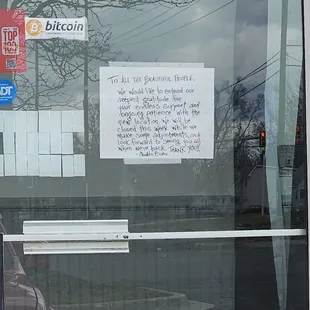 bitcoin
TOP
100
ADT
TO ALL THE BEAUTIFUL PEOPLE,
We would like to extend our
deepest gratitude for
your endless support and
ongoing patience with the
new location. We will be
closed this week while we
make some adjustments and
look forward to seeing you all
when we're back. THANK YOU!!